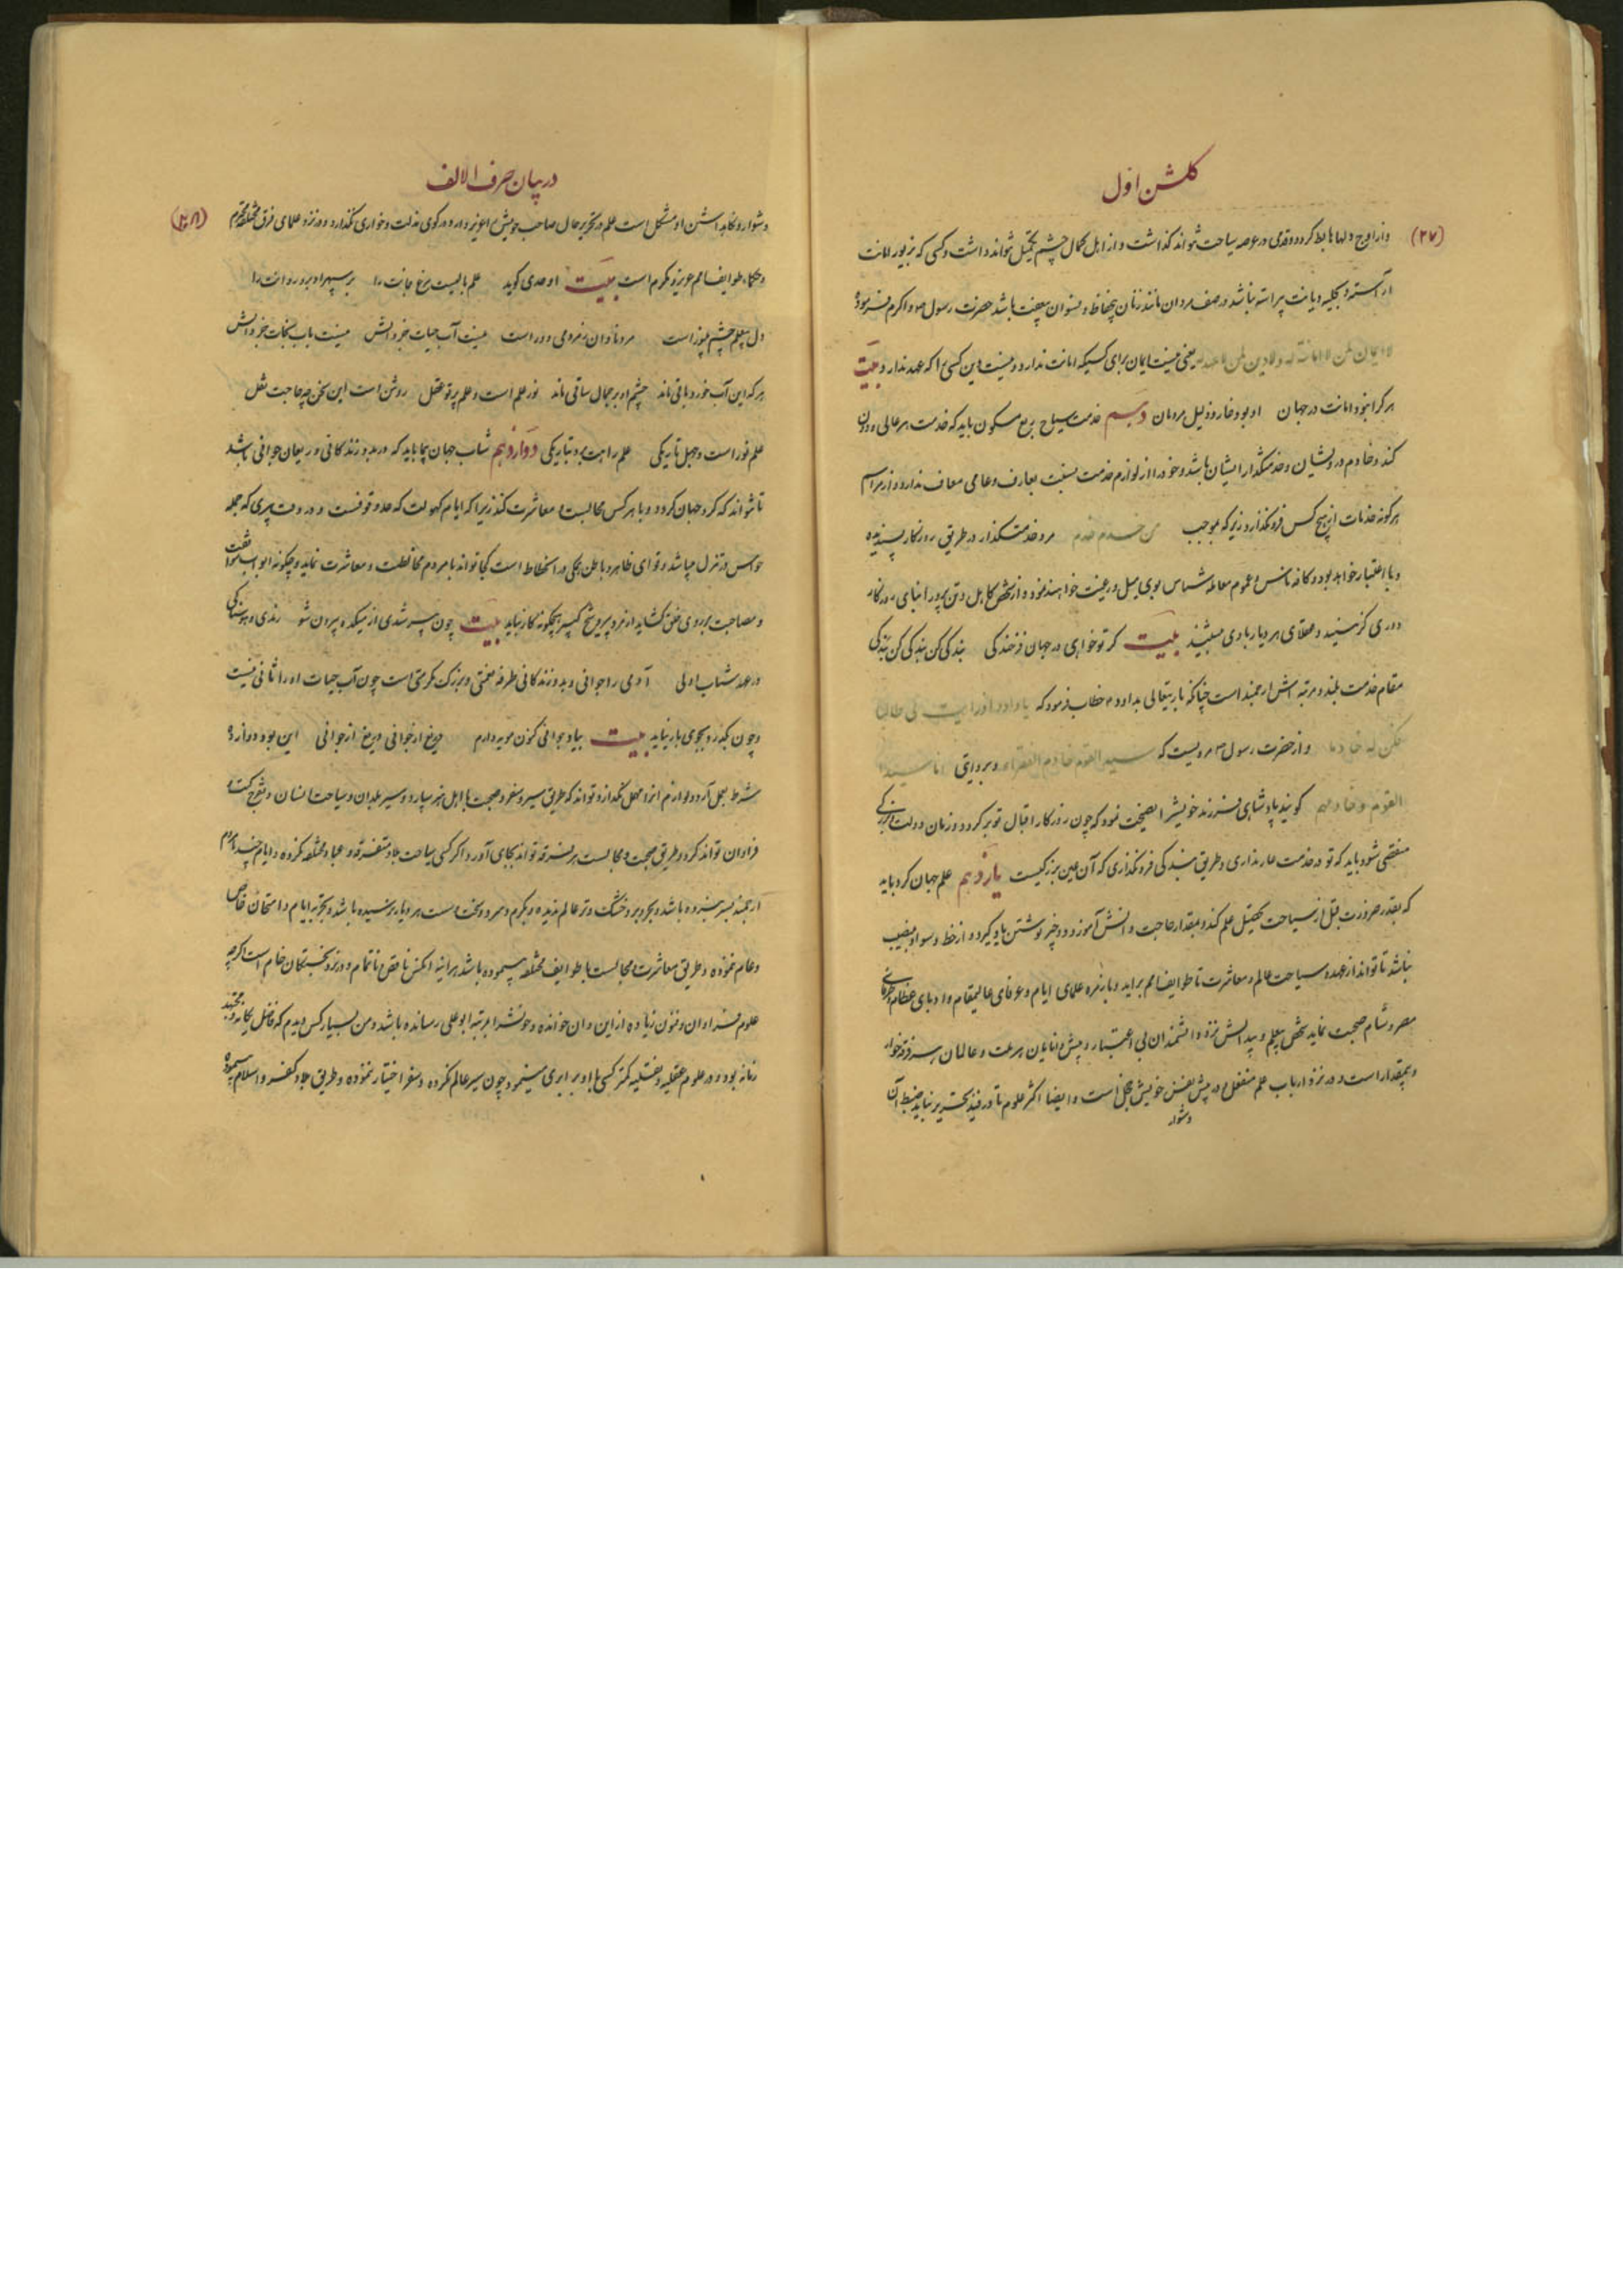 گلشن اول
(۲۷)
واز اوج دلها هابط گردد و قدمی در عرصه سیاحت نتواند گذاشت و از اهل کمال چشم تحمل نتواند داشت و کسی که بزیور امانت
آراسته و بحلیه دیانت پیراسته نباشد در صف مردان مانند زنان بیحفاظ و نسوان بیعفت باشد حضرت رسول ص و اکرم فرموده
لا ایمان لمن لا امانة له ولا دین لمن لا عهد له یعنی نیست ایمان برای کسیکه امانت ندارد و نیست دین کسی را که عهد ندارد بیت
هر کرا نبود امانت در جهان او بود خار و ذلیل مردمان دهم خدمت سیاح ربع مسکون باید که خدمت هر عالی و دون
کند و خادم درویشان و خدمتگذار ایشان باشد و خود را از لوازم خدمت بنسبت بعارف و عامی معاف ندارد و از مراسم
هرگونه خدمات از هیچ کس فرو نگذارد زیرکه بموجب من خدم خدم مرد خدمتگذار در طریق روزگار پسندیده
و با اعتبار خواهد بود و کافه ناس و عموم معامله شناس بوی میل و رغبت خواهند نمود و از شخص کاهل و تن پرور ابنای روزگار
دوری گزینند و عقلای هر دیار با وی بیت گر تو خواهی در جهان فرخندگی بندگی کن بندگی کن بندگی
مقام خدمت بلند و مرتبه اش ارجمند است چنانکه باریتعالی بداود ع خطاب فرمود که یا داود اذا رایت لی طالبا
فکن له خادما و از حضرت رسول ص مرویست که سید القوم خادم الفقراء و بروایتی انا سید
القوم و خادمهم گویند پادشاهی فرزند خویش را نصیحت نمود که چون روزگار اقبال تو برگردد و زمان دولت
منقضی شود باید که تو در خدمت عار نداری و طریق بندگی فرو نگذاری که آن عین بزرگیست یازدهم علم جهان گرد باید
که بقدر ضرورت قبل از سیاحت تحصیل علم کند و بمقدار حاجت دانش آموزد و چیز نوشتن یاد گیرد و از خط و سواد بی نصیب
نباشد تا تواند از عهده سیاحت عالم و معاشرت با طوایف امم براید و با زمره علمای ایام و عرفای عالیمقام و ادبای عظام
مصر و شام صحبت نماید شخص بیعلم و بیدانش نزد دانشمندان بی اعتبار و پیش دانایان ملت و عالمان هر فرقه خوار
و بیمقدار است و در نزد ارباب علم منفعل و در پیش نفس خویش خجل است و ایضا اکثر علوم تا در قید تحریر نیاید ضبط آن
دشوار
در بیان حرف الالف
(۲۸)
دشوار و نگاهداشتن او مشکل است علم در تحریر حال صاحب خویش را عزیز دارد و در کوی مذلت و خواری نگذارد و در نزد علمای فرق مختلفه محترم
و حکماء طوایف امم عزیز و مکرم است بیت اوحدی گوید علم بالیست مرغ جانت را بر سپهر او برد روانت را
دل بیعلم چشم بی نور است مرد نادان ز مردمی دور است نیست آب حیات جز دانش نیست باب نجات جز دانش
هر که این آب خورد باقی ماند چشم او بر جمال ساقی ماند نور علم است و علم پرتو عقل روشن است این سخن چه حاجت نقل
علم نور است و جهل تاریکی علم راهت برد بتاریکی دوازدهم شاب جهان پیما باید که در بدو زندگانی و ریعان جوانی باشد
تا تواند که گرد جهان گردد و با هر کس مجالست و معاشرت کند زیرا که ایام کهولت که حد وقوفست و در وقت پیری که جمله
حواس در تنزل میباشد و قوای ظاهر و باطن بکلی در انحطاط است کجا تواند با مردم مخالطت و معاشرت نماید و چگونه ابواب
و مصاحبت بر روی خلق گشاید از مرد پیر و شیخ کبیر هیچگونه کار نیاید بیت چون پیر شدی از میکده بیرون شو رندی و هوسناکی
در عهد شباب اولی آدمی را جوانی و بدو زندگانی طرفه نعمتی و بزرگ مکرمتی است چون آب حیات او را ثانی نیست
و چون بگذرد بجوی باز نیاید بیت بیاد جوانی کنون مویه دارم دریغ از جوانی دریغ از جوانی این بود دوازده
شرط بعمل آورد و لوازم آنرا مهمل نگذارد تواند که طریق سیر و سفر و صحبت با اهل هنر سپارد و سیر بلدان و سیاحت انسان
فراوان تواند کرد و طریق صحبت و مجالست هر فرقه تواند بجای آورد و اگر کسی سیاحت بلاد متفرقه و عباد مختلفه نکرده و ایام چند
ارجمند بسر نبرده باشد و بحر و بر و خشک و تر عالم ندیده و بگرم و سرد و سخت و سست هر دیار نرسیده باشد و تجربه ایام و امتحان خاص
و عام ننموده و طریق معاشرت و مجالست با طوایف مختلفه نپیموده باشد هرآینه آنکس ناقص و ناتمام و در نزد پختگان خام است اگرچه
علوم فراوان و فنون زیاده از این و آن خوانده و خویش را بمرتبه ابو علی رسانده باشد و من بسیار کس دیدم که فاضل یگانه و مجتهد
زمانه بود و در علوم عقلیه و نقلیه کمتر کسی با او برابری مینمود چون سیر عالم نکرده و سفر اختیار ننموده و طریق بلاد کفر و اسلام نپیموده